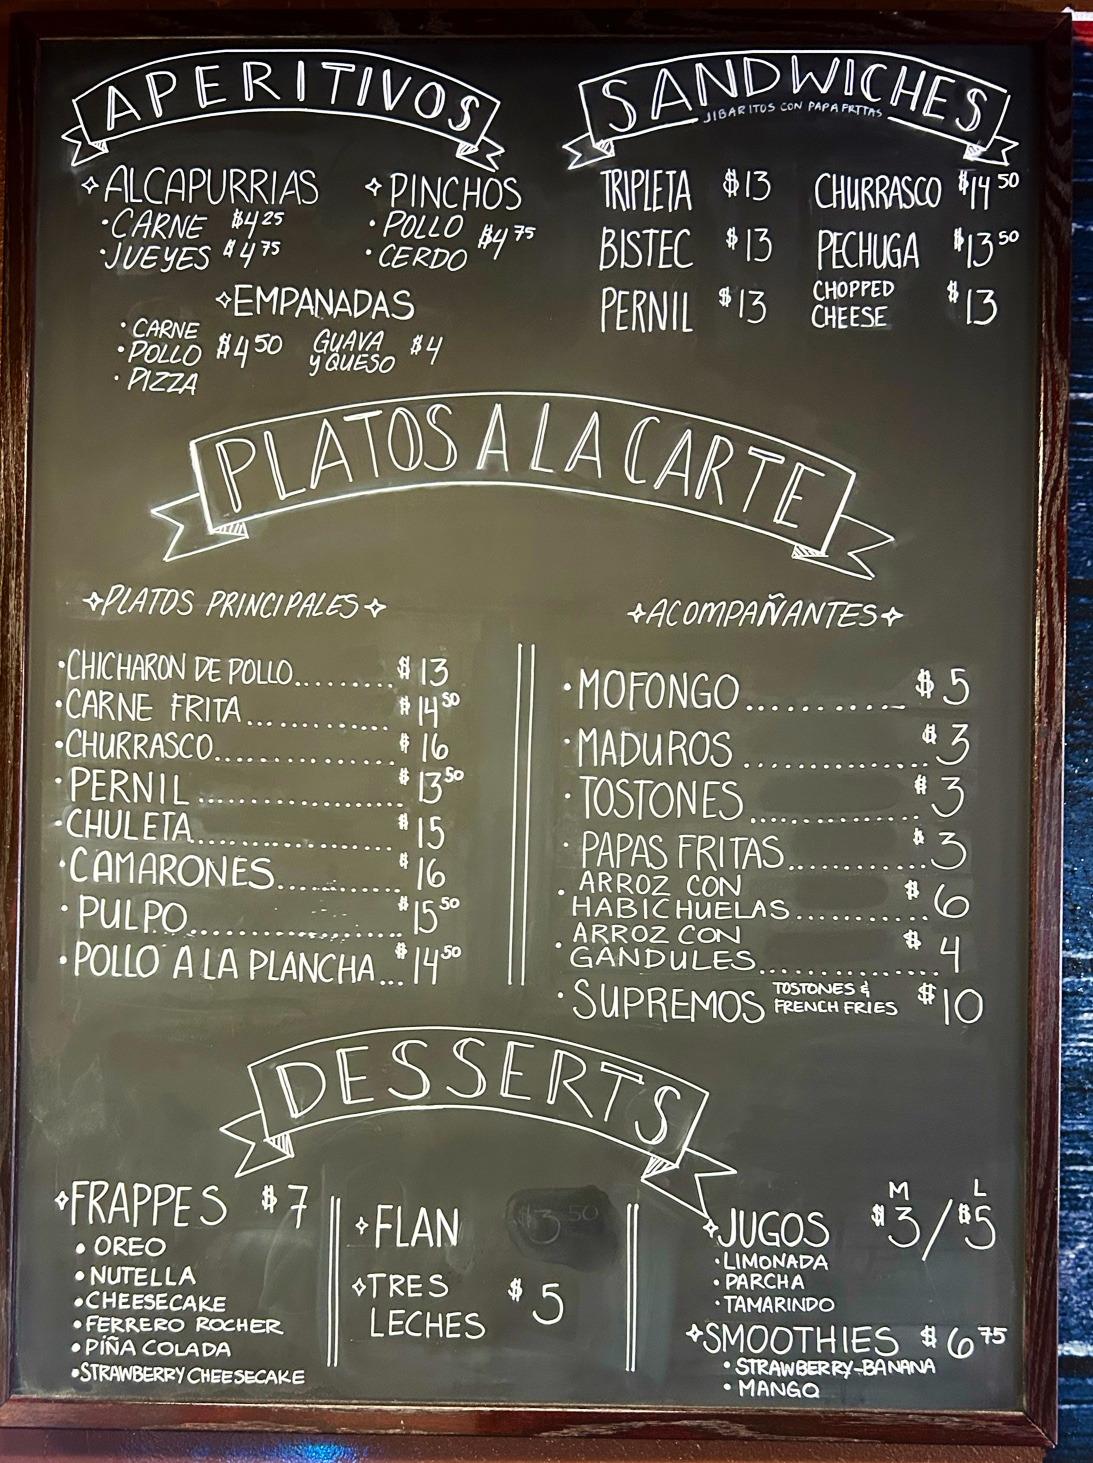 APERITIVOS
✧ALCAPURRIAS
·CARNE $4 25
·JUEYES $4 75
✧PINCHOS
·POLLO
·CERDO $4 75
✧EMPANADAS
·CARNE
·POLLO $4 50
·PIZZA
GUAVA
y QUESO $4
SANDWICHES
JIBARITOS CON PAPA FRITAS
TRIPLETA $13
BISTEC $13
PERNIL $13
CHURRASCO $14 50
PECHUGA $13 50
CHOPPED
CHEESE $13
PLATOS A LA CARTE
✧PLATOS PRINCIPALES✧
·CHICHARON DE POLLO........ $13
·CARNE FRITA............ $14 50
·CHURRASCO............... $16
·PERNIL................. $13 50
·CHULETA................ $15
·CAMARONES........... $16
·PULPO................. $15 50
·POLLO A LA PLANCHA... $14 50
✧ACOMPAÑANTES✧
·MOFONGO........... $5
·MADUROS............. $3
·TOSTONES............ $3
·PAPAS FRITAS.......... $3
·ARROZ CON
HABICHUELAS.......... $6
·ARROZ CON
GANDULES............. $4
·SUPREMOS TOSTONES &
FRENCH FRIES $10
DESSERTS
✧FRAPPES $7
•OREO
•NUTELLA
•CHEESECAKE
•FERRERO ROCHER
•PIÑA COLADA
•STRAWBERRY CHEESECAKE
✧FLAN $3 50
✧TRES
LECHES $5
M L
✧JUGOS $3/$5
·LIMONADA
·PARCHA
·TAMARINDO
✧SMOOTHIES $6 75
•STRAWBERRY-BANANA
•MANGO